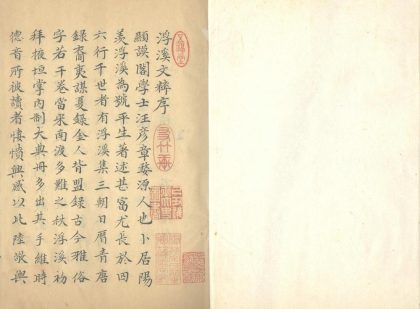 浮溪文粹序
顯謨閣學士汪彥章婺源人也卜居陽
羨浮溪為號平生著述甚富尤長於四
六行于世者有浮溪集三朝日曆青唐
錄裔夷謀夏錄金人背盟錄古今雅俗
字若干卷當宋南渡多難之秋浮溪初
拜掖垣掌內制大典冊多出其手維時
德音所被讀者悽憤興感以比陸敬輿